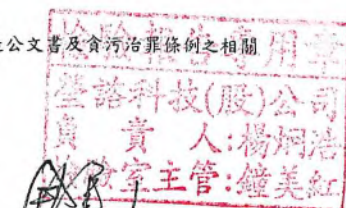 公文書及貪污治罪條例之相關
檢驗報告專用章
瑩諮科技(股)公司
負責人:楊炯浩
檢驗室主管:鐘美紅